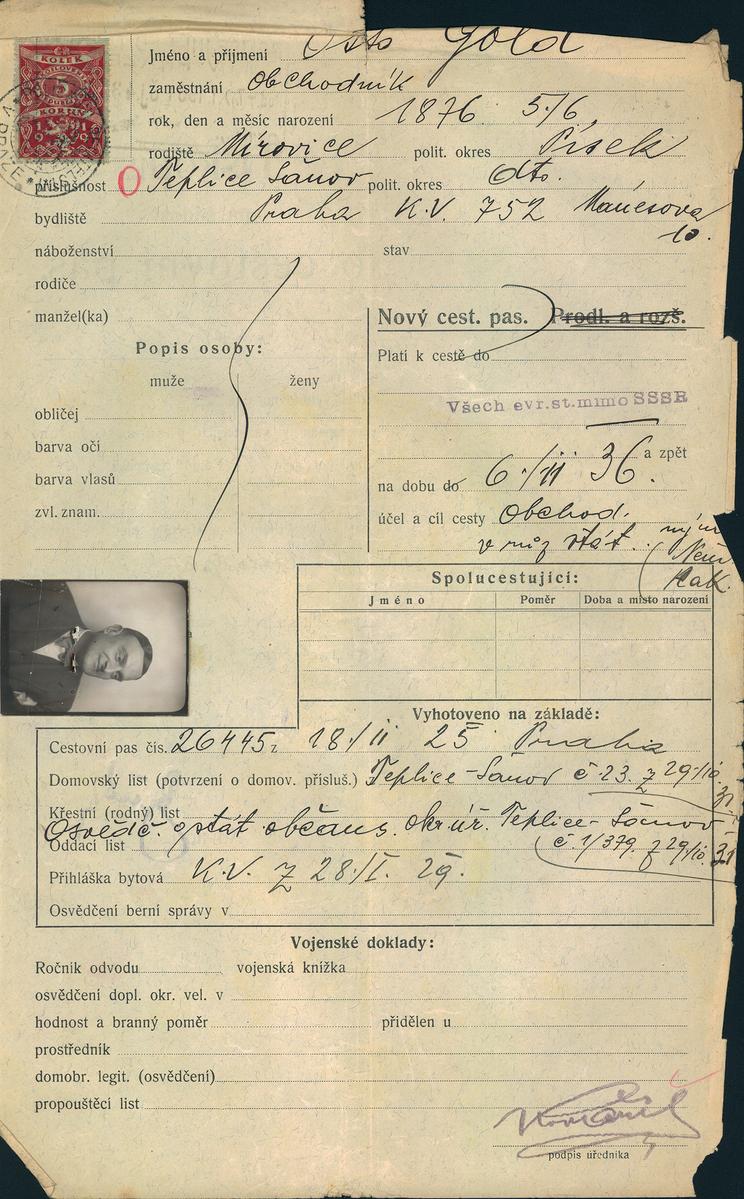 KOLEK
5
KORUN
Jméno a přijmení Otto Gold
zaměstnání Obchodník
rok, den a měsíc narození 1876 5/6
rodiště Mírovice polit. okres Písek
příslušnost O Teplice Šanov polit. okres dto.
bydliště Praha K.V. 752 Mánesova
10.
náboženství stav
rodiče
manžel(ka)
Nový cest. pas. Prodl. a rozš.
Popis osoby:
Platí k cestě do
muže ženy
Všech evr.st.mimo SSSR
obličej
barva očí
a zpět
barva vlasů
na dobu do 6./II 36.
zvl. znam.
účel a cíl cesty Obchod.
v růz stát.
Něm
Rak.
Spolucestující:
Jméno Poměr Doba a místo narození
Vyhotoveno na základě:
Cestovní pas čís. 26445 z 18/II 25 Praha
Domovský list (potvrzení o domov. přísluš.) Teplice-Šanov č. 23. z 29/10. 31
Křestní (rodný) list
Osvědč. o stát občans. okr. úř. Teplice-Šanov
Oddací list č. 1/379. z 29/10. 31
Přihláška bytová K.V. z 28./I. 29.
Osvědčení berní správy v
Vojenské doklady:
Ročník odvodu vojenská knížka
osvědčení dopl. okr. vel. v
hodnost a branný poměr přidělen u
prostředník
domobr. legit. (osvědčení)
propouštěcí list
podpis úředníka